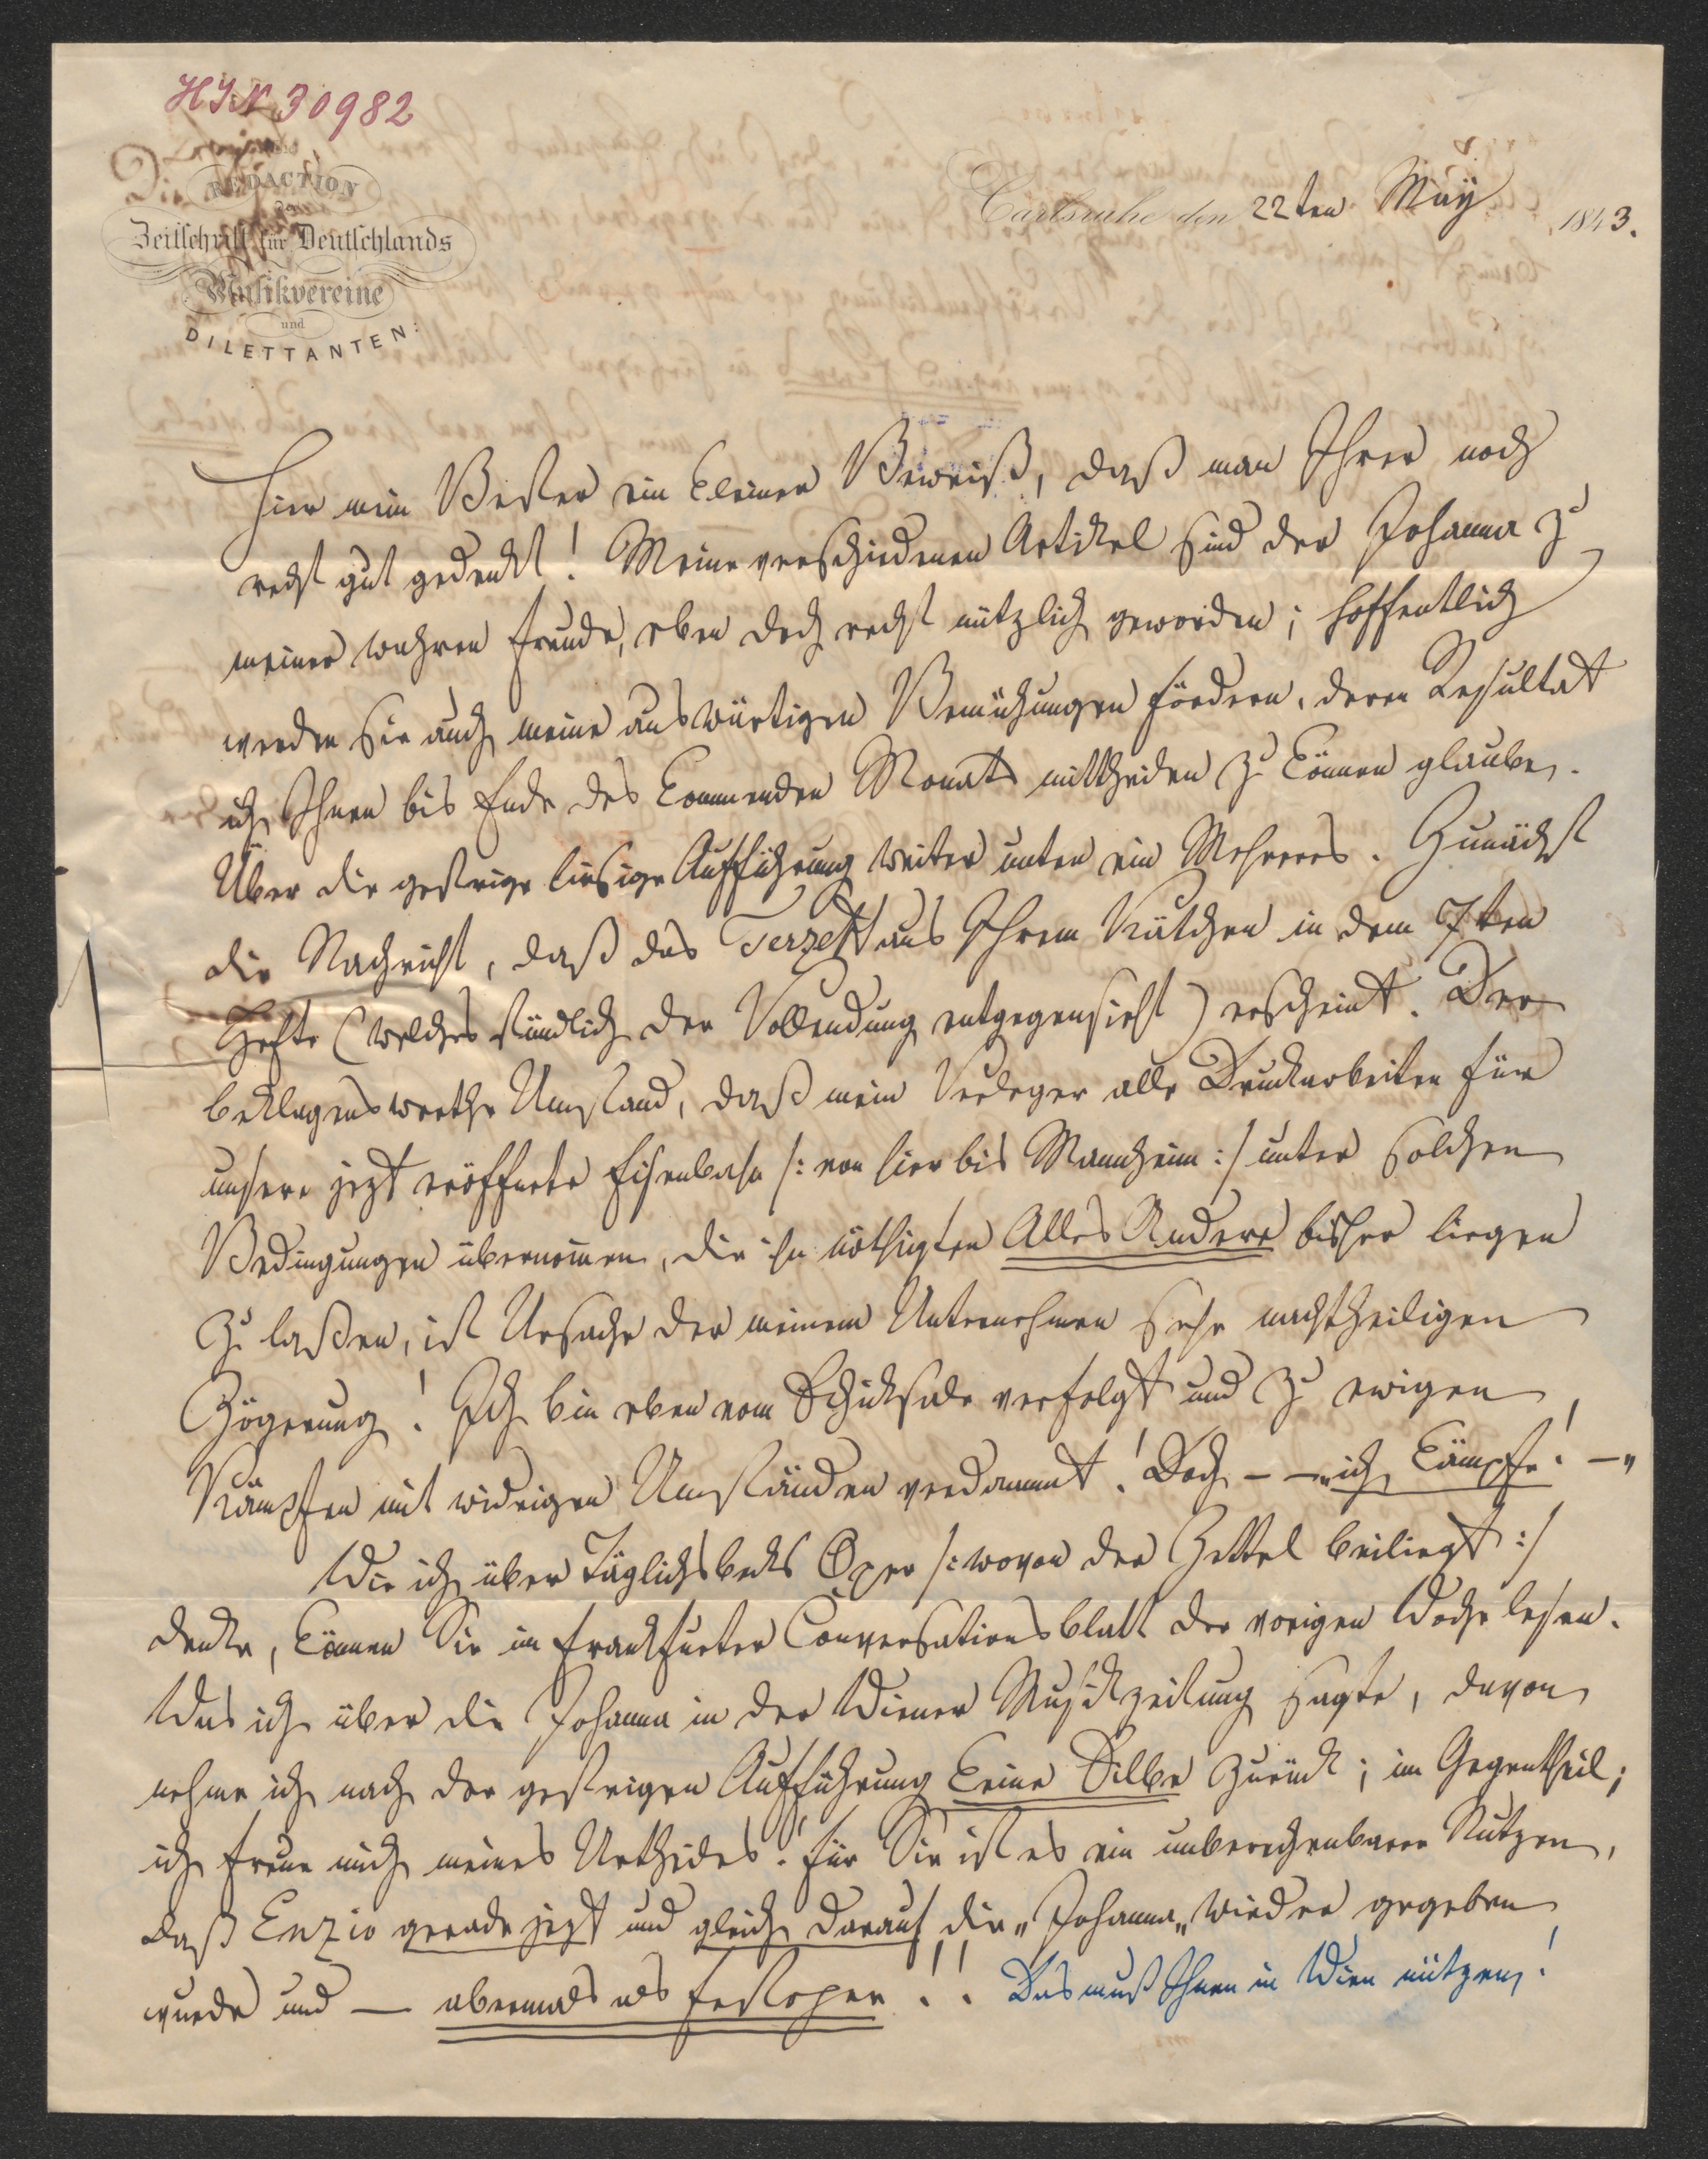 HIN 30982
Die
REDACTION
der
Zeitschrift für Deutschlands
Musikvereine
und
DILETTANTEN:
Carlsruhe den 22ten May 1843.
Hier mein Bester ein kleiner Beweiß, daß man Ihrer noch
recht gut gedenkt! Meine verschiedenen Artikel sind der Johanna zu
meiner wahren Freude, eben doch recht nützlich geworden; hoffentlich
werden sie auch meine auswärtigen Bemühungen fördern, deren Resultat
ich Ihnen bis Ende des kommenden Monats mittheilen zu können glaube.
Über die gestrige hiesige Aufführung weiter unten ein Mehreres. Zunächst
die Nachricht, daß das Terzett aus Ihrem Käthchen in dem 7ten
Hefte (welches stündlich der Vollendung entgegensieht) erscheint. Der
beklagenswerthe Umstand, daß mein Verleger alle Druckarbeiten für
unsere jezt eröffnete Eisenbahn /: von hier bis Mannheim :/ unter solchen
Bedingungen übernomen, die ihn nöthigten Alles Andere bisher liegen
zu laßen, ist Ursache der meinem Unternehmen sehr nachtheiligen
Zögerung! Ich bin eben vom Schicksale verfolgt und zu ewigen
Kämpfen mit widrigen Umständen verdammt! Doch – – „ich kämpfe! –"
Wie ich über Täglichsbecks Oper /: wovon der Zettel beiliegt :/
denke, können Sie im Frankfurter Conversationsblatt der vorigen Woche lesen.
Was ich über die Johanna in der Wiener Musikzeitung sagte, davon
nehme ich nach der gestrigen Aufführung keine Silbe zurück; im Gegentheil;
ich freue mich meines Urtheiles! Für Sie ist es ein unberechenbarer Nutzen,
daß Enzio gerade jezt und gleich darauf die „Johanna" wieder gegeben
wurde und — abermals als Festoper!! Das muß Ihnen in Wien nützen!